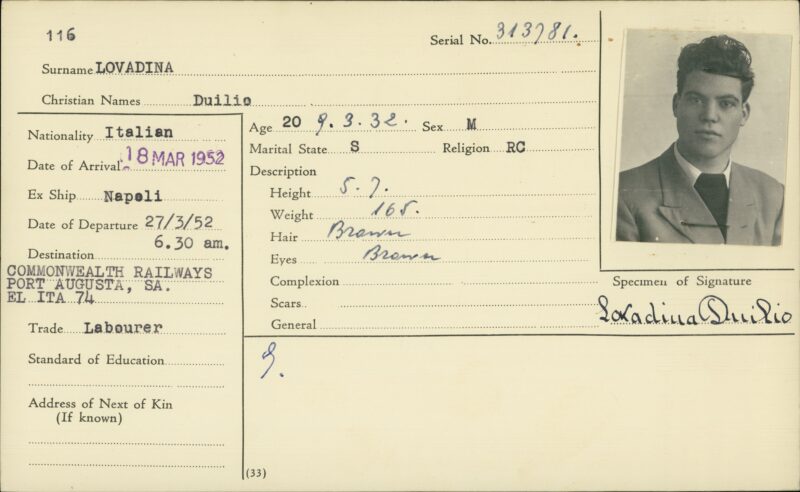 116
Serial No. 313781.
Surname LOVADINA
Christian Names Duilio
Nationality Italian
Date of Arrival 18 MAR 1952
Ex Ship Napoli
Date of Departure 27/3/52
6.30 am.
Destination
COMMONWEALTH RAILWAYS
PORT AUGUSTA, SA.
EL ITA 74
Trade Labourer
Standard of Education
Address of Next of Kin
(If known)
Age 20 9.3.32. Sex M
Marital State S Religion RC
Description
Height 5.7.
Weight 165.
Hair Brown
Eyes Brown
Complexion
Scars
General
(33)
Specimen of Signature
Lovadina Duilio